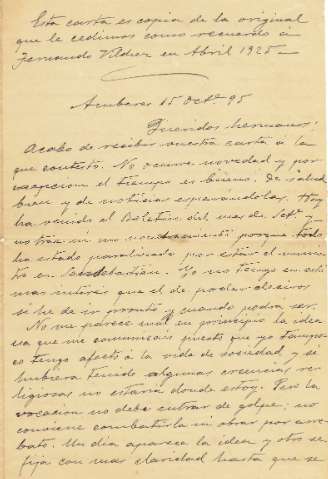 Esta carta es copia de la original
que le cedimos como recuerdo a
Fernando Vildier en Abril 1925 —
15 Octe 95
Queridos hermanos:
Acabo de recibir vuestra carta á la
que contesto. No ocurre novedad y por
excepcion el tiempo es bueno; de salud
bien y de noticias esperandolas. Hoy
ha venido el Boletin del mes de Sete y
porque todo
ha estado paralizado por estar el minis-
tro en San Sebastian. Yo no tengo en esto
mas interés que el de poder deciros
si he de ir pronto y cuando podrá ser.
No me parece mal en principio la idea
que me comunicais puesto que yo tampo-
co tengo afecto á la vida de sociedad, y se
hubiera tenido algunas creencias re-
ligiosas no estaria donde estoy. Pero la
vocacion no debe entrar de golpe; no
conviene combatirla ni obrar por arre-
bato. Un dia aparece la idea y otro se
fija con mas claridad hasta que se